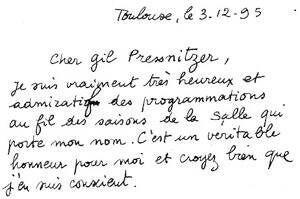 Toulouse, le 3-12-95
Cher Gil Pressnitzer,
Je suis vraiment très heureux et
admiratif des programmations
au fil des saisons de la salle qui
porte mon nom. C'est un veritable
honneur pour moi et croyez bien que
j'en suis conscient.